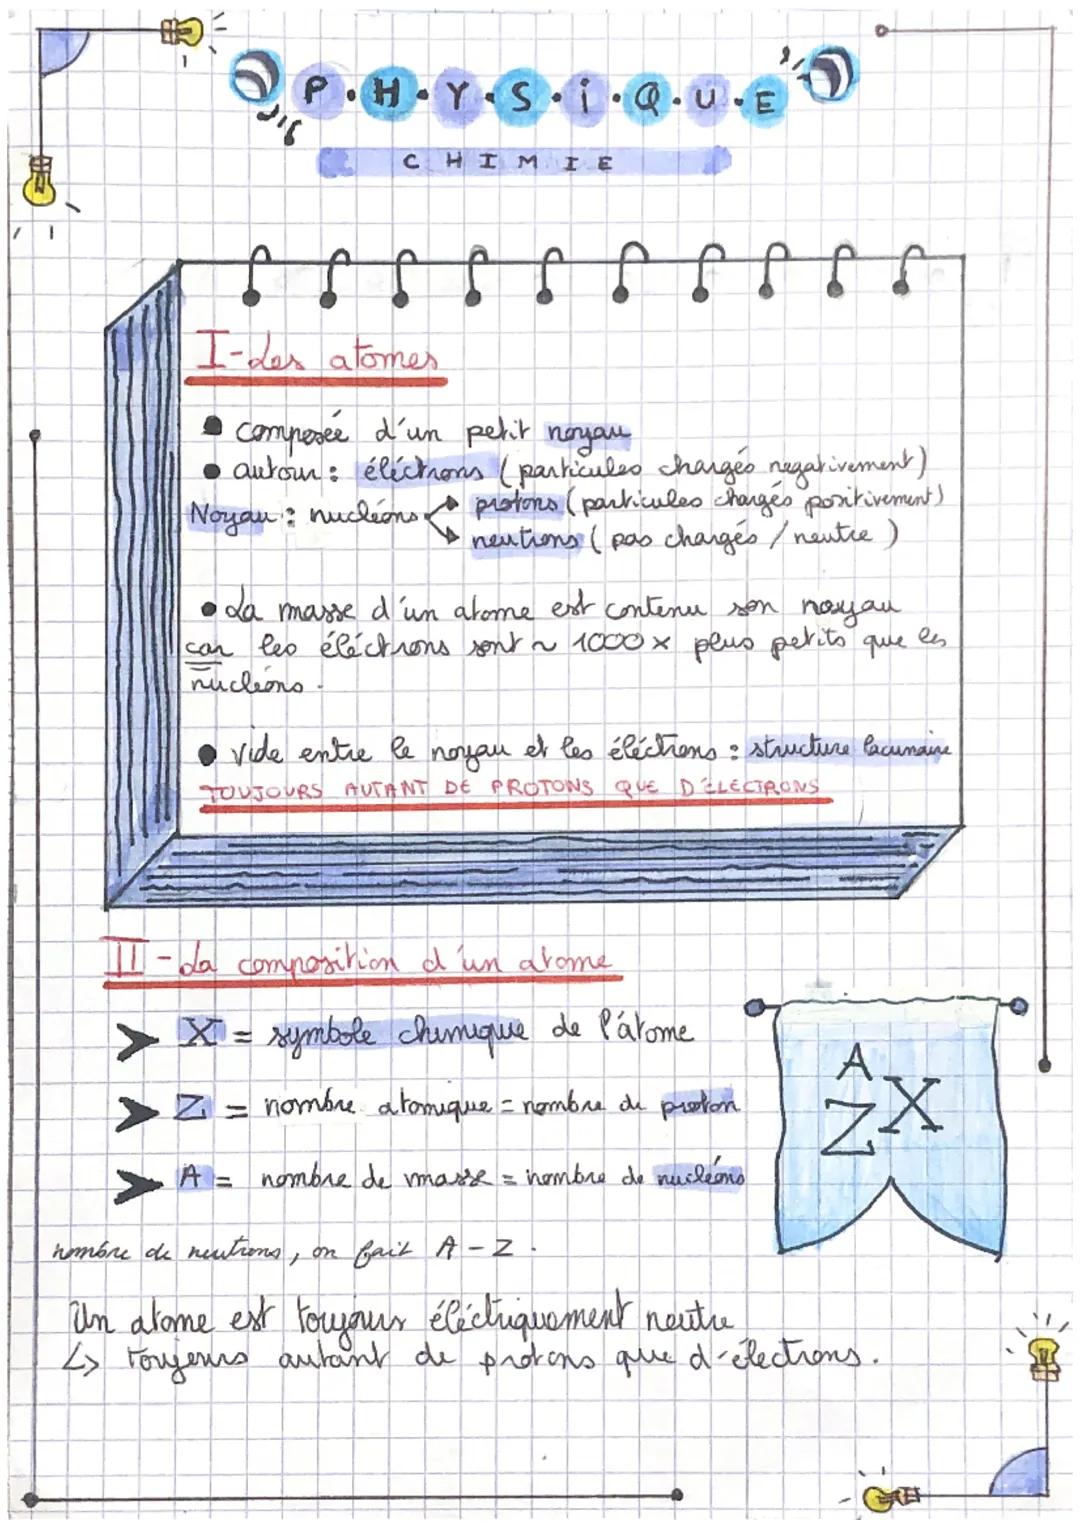 P.H.Y.S.i.Q.U.E
CHIMIE
I-Les atomes
composée d'un petit noyau
autour : éléctrons (particules chargés negativement)
Noyau : nucléons protons (particules chargés positivement)
neutrons (pas chargés / neutre)
La masse d'un atome est contenu son noyau
car les éléctrons sont ~ 1000 x plus petits que les
nucléons.
Vide entre le noyau et les éléctrons : structure lacunaire
TOUJOURS AUTANT DE PROTONS QUE D'ÉLECTRONS
II-La composition d'un atome
X = symbole chimique de l'átome
Z = nombre atomique = nombre de proton
A = nombre de masse = nombre de nucléons
A
Z X
nombre de neutrons, on fait A - Z.
Un atome est toujours éléctriquement neutre
↳ toujours autant de protons que d'électrons.